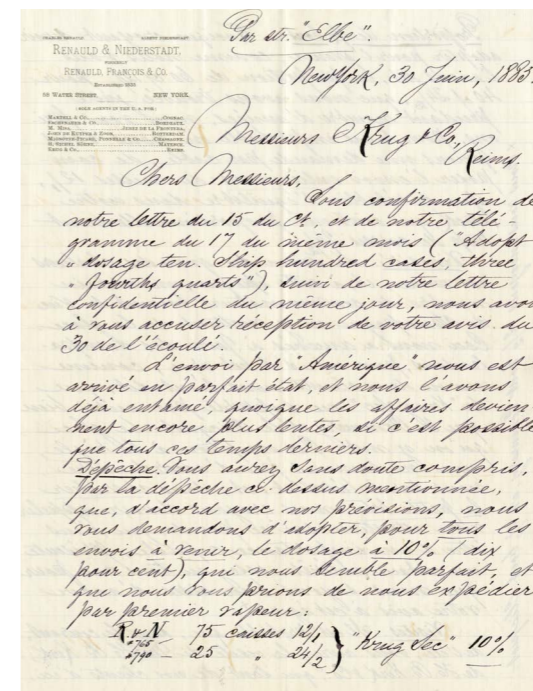 Par str. "Elbe".
CHARLES RENAULD
ALBERT NIEDERSTADT
RENAULD & NIEDERSTADT,
FORMERLY
RENAULD, FRANÇOIS & CO.
Established 1850
56 WATER STREET. NEW YORK.
SOLE AGENTS IN THE U. S. FOR:
MARTELL & CO. COGNAC.
BORDEAUX.
M. MISA, JEREZ DE LA FRONTERA.
JOHS DE KUYPER & ZOON, ROTTERDAM.
MAYENCE.
KRUG & CO., REIMS.
New York, 30 Juin, 1885.
Messieurs Krug & Co,
Reims.
Chers Messieurs,
Sous confirmation de
notre lettre du 15 du Ct, et de notre télé-
gramme du 17 du même mois ("Adopt
" dosage ten. Ship hundred cases, three
" fourths quarts"), suivi de notre lettre
confidentielle du même jour, nous avon
à vous accuser réception de votre avis du
30 de l'écoulé.
L'envoi par "Amérique" nous est
arrivé en parfait état, et nous l'avons
déjà entamé, quoique les affaires devien
nent encore plus lentes, si c'est possible
que tous ces temps derniers.
Dépêche. Vous aurez sans doute compris,
par la dépêche ci-dessus mentionnée,
que, d'accord avec nos prévisions, nous
vous demandons d'adopter, pour tous les
envois à venir, le dosage à 10% (dix
pour cent), qui nous semble parfait, et
que nous vous prions de nous expédier
par premier vapeur:
R & N 75 caisses 12/1
#765
#790 — 25 " 24/2 } "Krug Sec" 10%